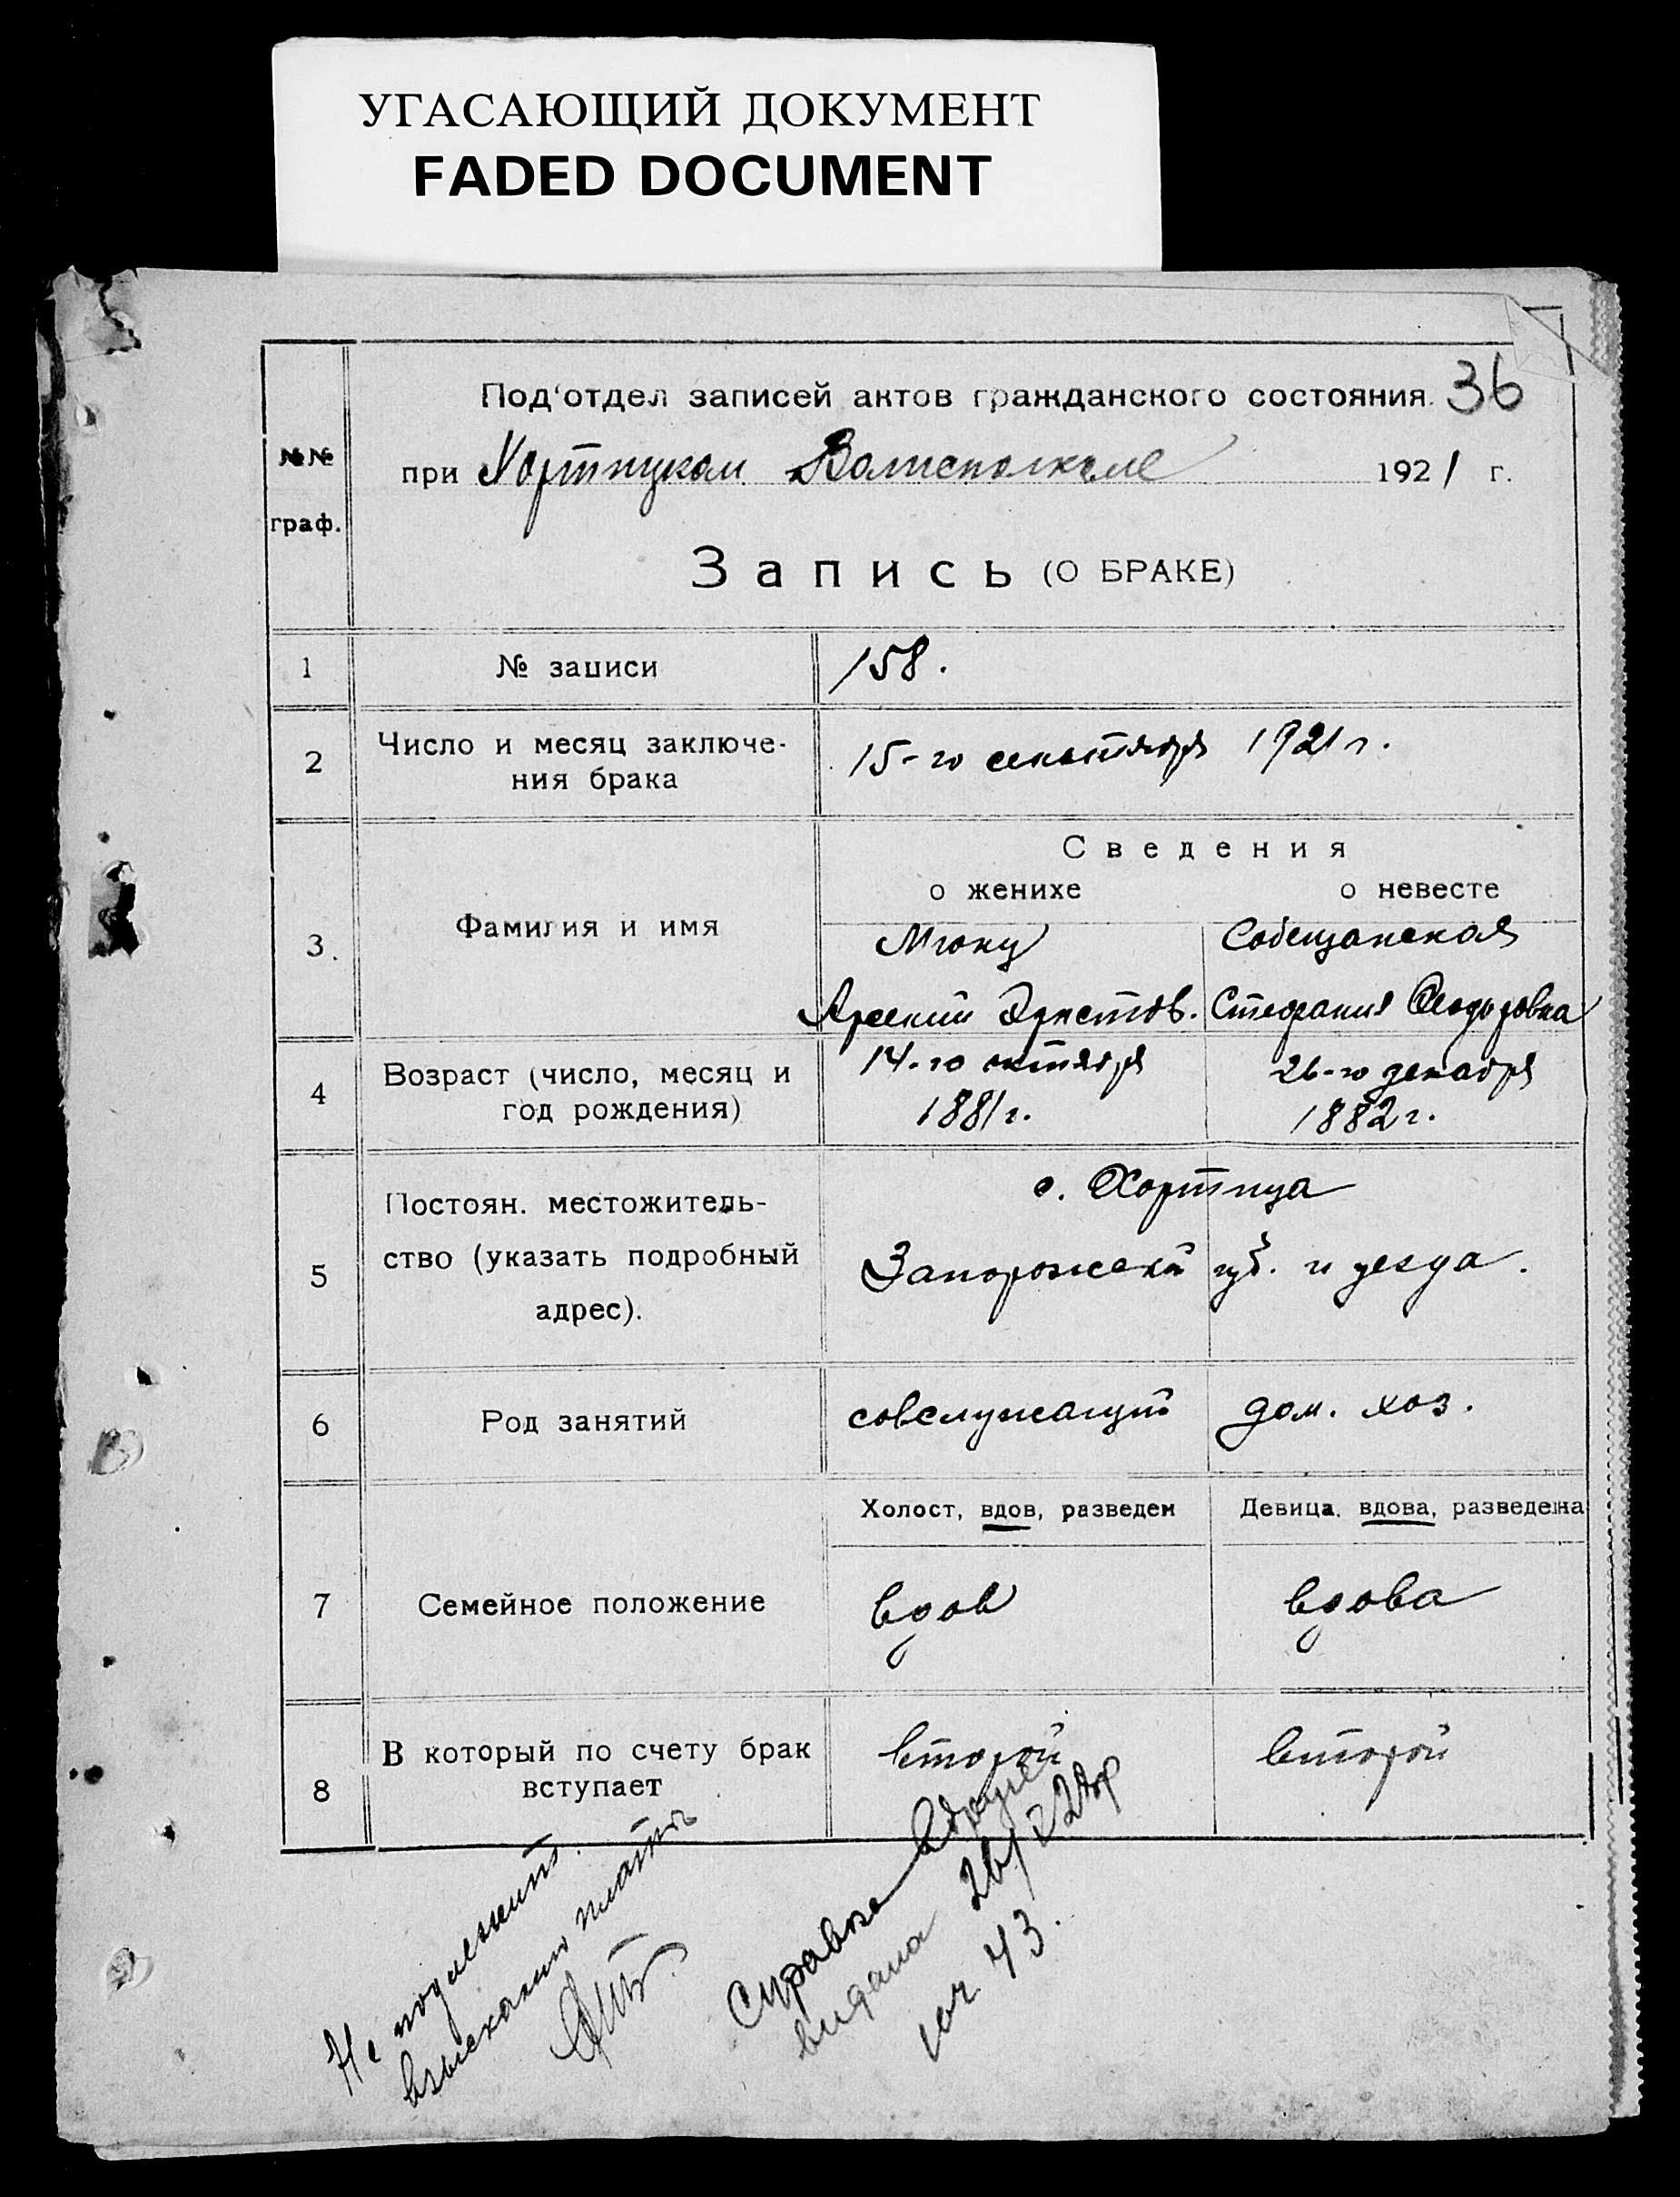 УГАСАЮЩИЙ ДОКУМЕНТ
FADED DOCUMENT
Под'отдел записей актов гражданского состояния. 36
№№ граф.
при Хортицком 1921 г.
Запись (О БРАКЕ)
1 № записи 158.
2 Число и месяц заключе-
ния брака
15-го сентября 1921 г.
Сведения
о женихе о невесте
3. Фамилия и имя
Собещанская
Арсений Стефания Феодоровна
4 Возраст (число, месяц и
год рождения)
14-го октября 26-го декабря
1881 г. 1882 г.
5 Постоян. местожитель-
ство (указать подробный
адрес).
с. Хортица
Запорожской губ. и уезда.
6 Род занятий совслужащий дом. хоз.
Холост, вдов, разведен Девица, вдова, разведена
7 Семейное положение вдов вдова
8 В который по счету брак
вступает
второй второй
Не подлежит
взысканию платы
Справка
выдана
43.